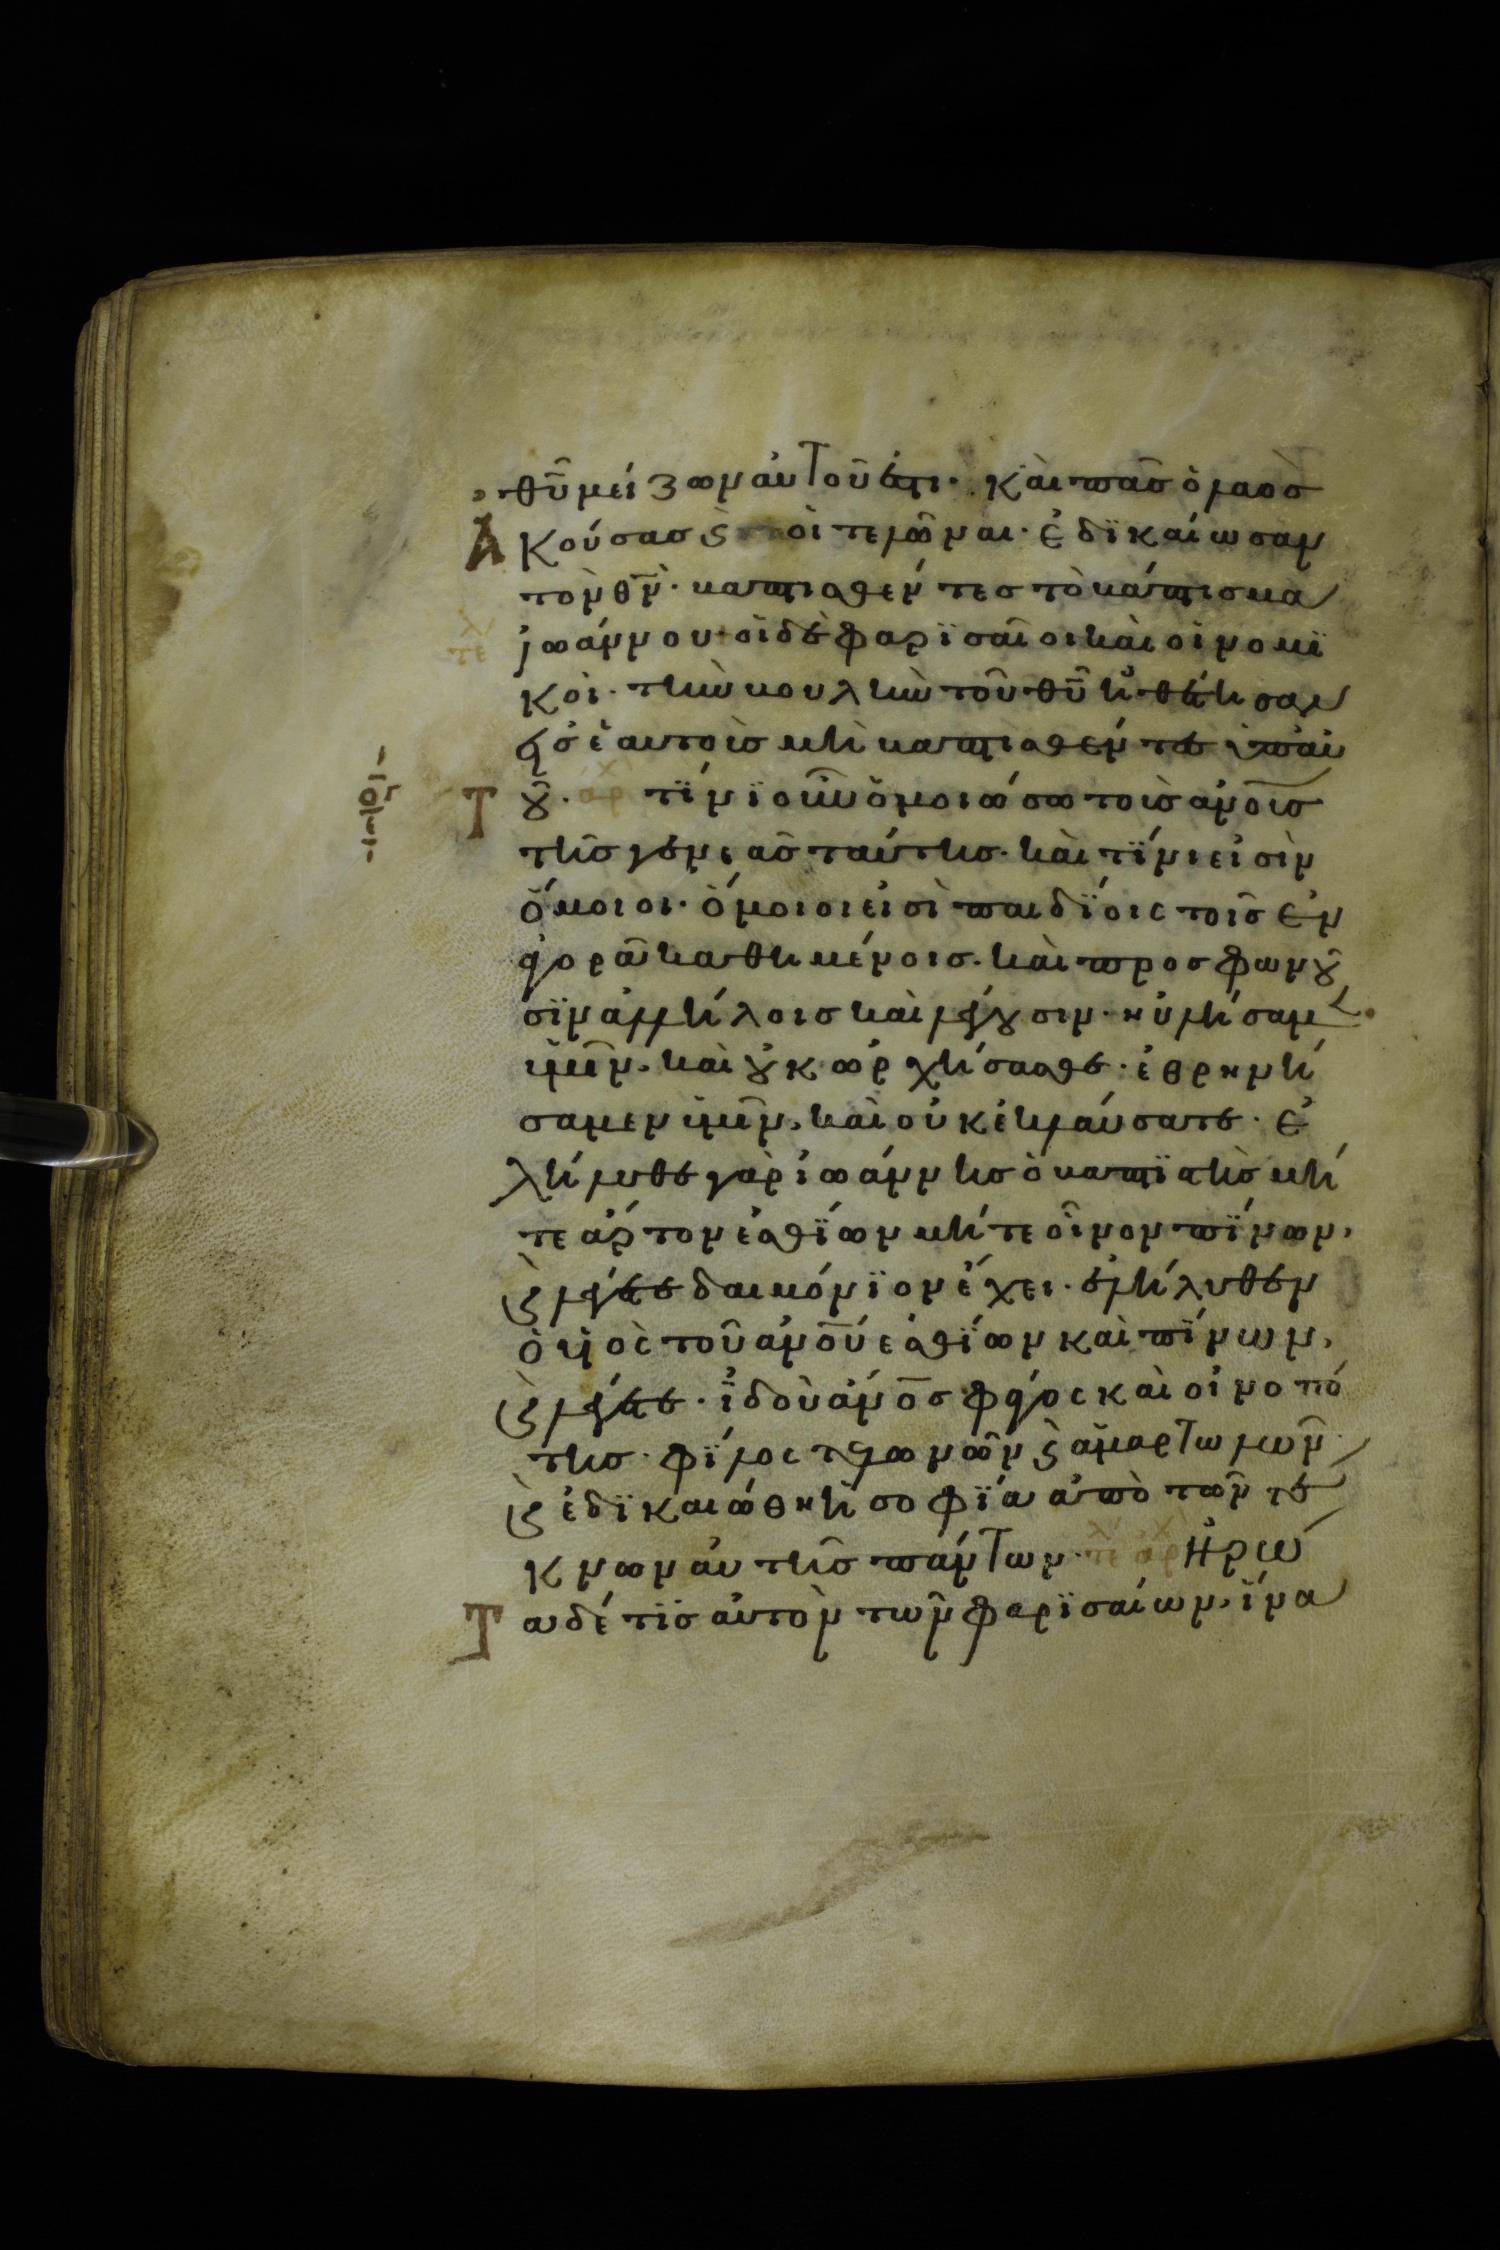 θῦ μείζων αυτοῦ ἐστι· καὶ πᾶς ὁ λαὸς
Ἀκούσας ϗ οἱ τελῶναι· ἐδϊκαίωσαν
τὸν θν̄· βαπτισθέντες τὸ βάπτισμα
ἰωάννου· οἱ δὲ φαρϊσαῖοι καὶ οἱ νομϊ
κοὶ· τὴν βουλὴν τοῦ θῦ ἠθέτησαν
εἰς ἑαυτοὺς μὴ βαπτισθέντες ὑπ' αὐ
τοῦ· αρχ τίνϊ οὖν ὁμοιώσω τοὺς ἀνο̄υς
τῆς γενεᾶς ταύτης· καὶ τίνι εἰσὶν
ὅμοιοι· ὅμοιοι εἰσὶ παιδΐοις τοῖς ἐν
ἀγορᾶ καθημένοις· καὶ προσφωνοῦ
σϊν ἀλλήλοις καὶ λέγουσιν· ηὐλήσαμεν
ὑμῖν· καὶ οὐκ ὠρχήσασθε· ἐθρηνή
σαμεν ὑμῖν, καὶ οὐκ ἐκλαύσατε· ἐ
λήλυθε γὰρ ἰωάννης ὁ βαπτϊστὴς μή
τε ἄρτον ἐσθΐων μήτε οἶνον πΐνων,
ϗ λέγετε δαιμόνϊον ἔχει· ἐλήλυθεν
ὁ υἱὸς τοῦ ἀνο̄υ ἐσθΐων καὶ πΐνων,
ϗ λέγετε· ἰδοὺ ἄνο̄ς φάγος καὶ οἰνοπό
της· φΐλος τελωνῶν ϗ ἁμαρτωλῶν·
ϗ ἐδϊκαιώθη ἡ σοφΐα ἀπὸ τῶν τέ
κνων αὐτῆς πάντων· τε αρχ Ἠρώ
Τα δέ τϊς αὐτὸν τῶν φαρϊσαίων, ἵνα